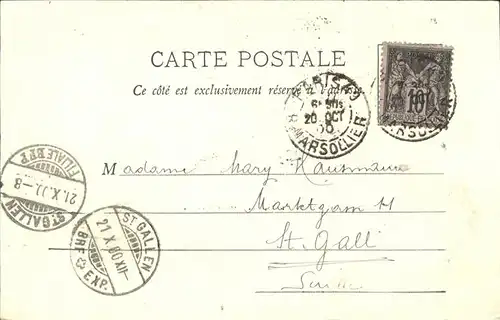 CARTE POSTALE
Ce côté est exclusivement réservé à l'adresse
PARIS
6E
20 OCT
R. MARSOLLIER
10
MARSOLLIER
ST. GALLEN
FILIALE BRF.
21.X.
-8
ST. GALLEN
21 X 00 XII-
BRF. EXP.
Madame Mary Hausmann
Marktgasse 11
St. Gall
Suisse